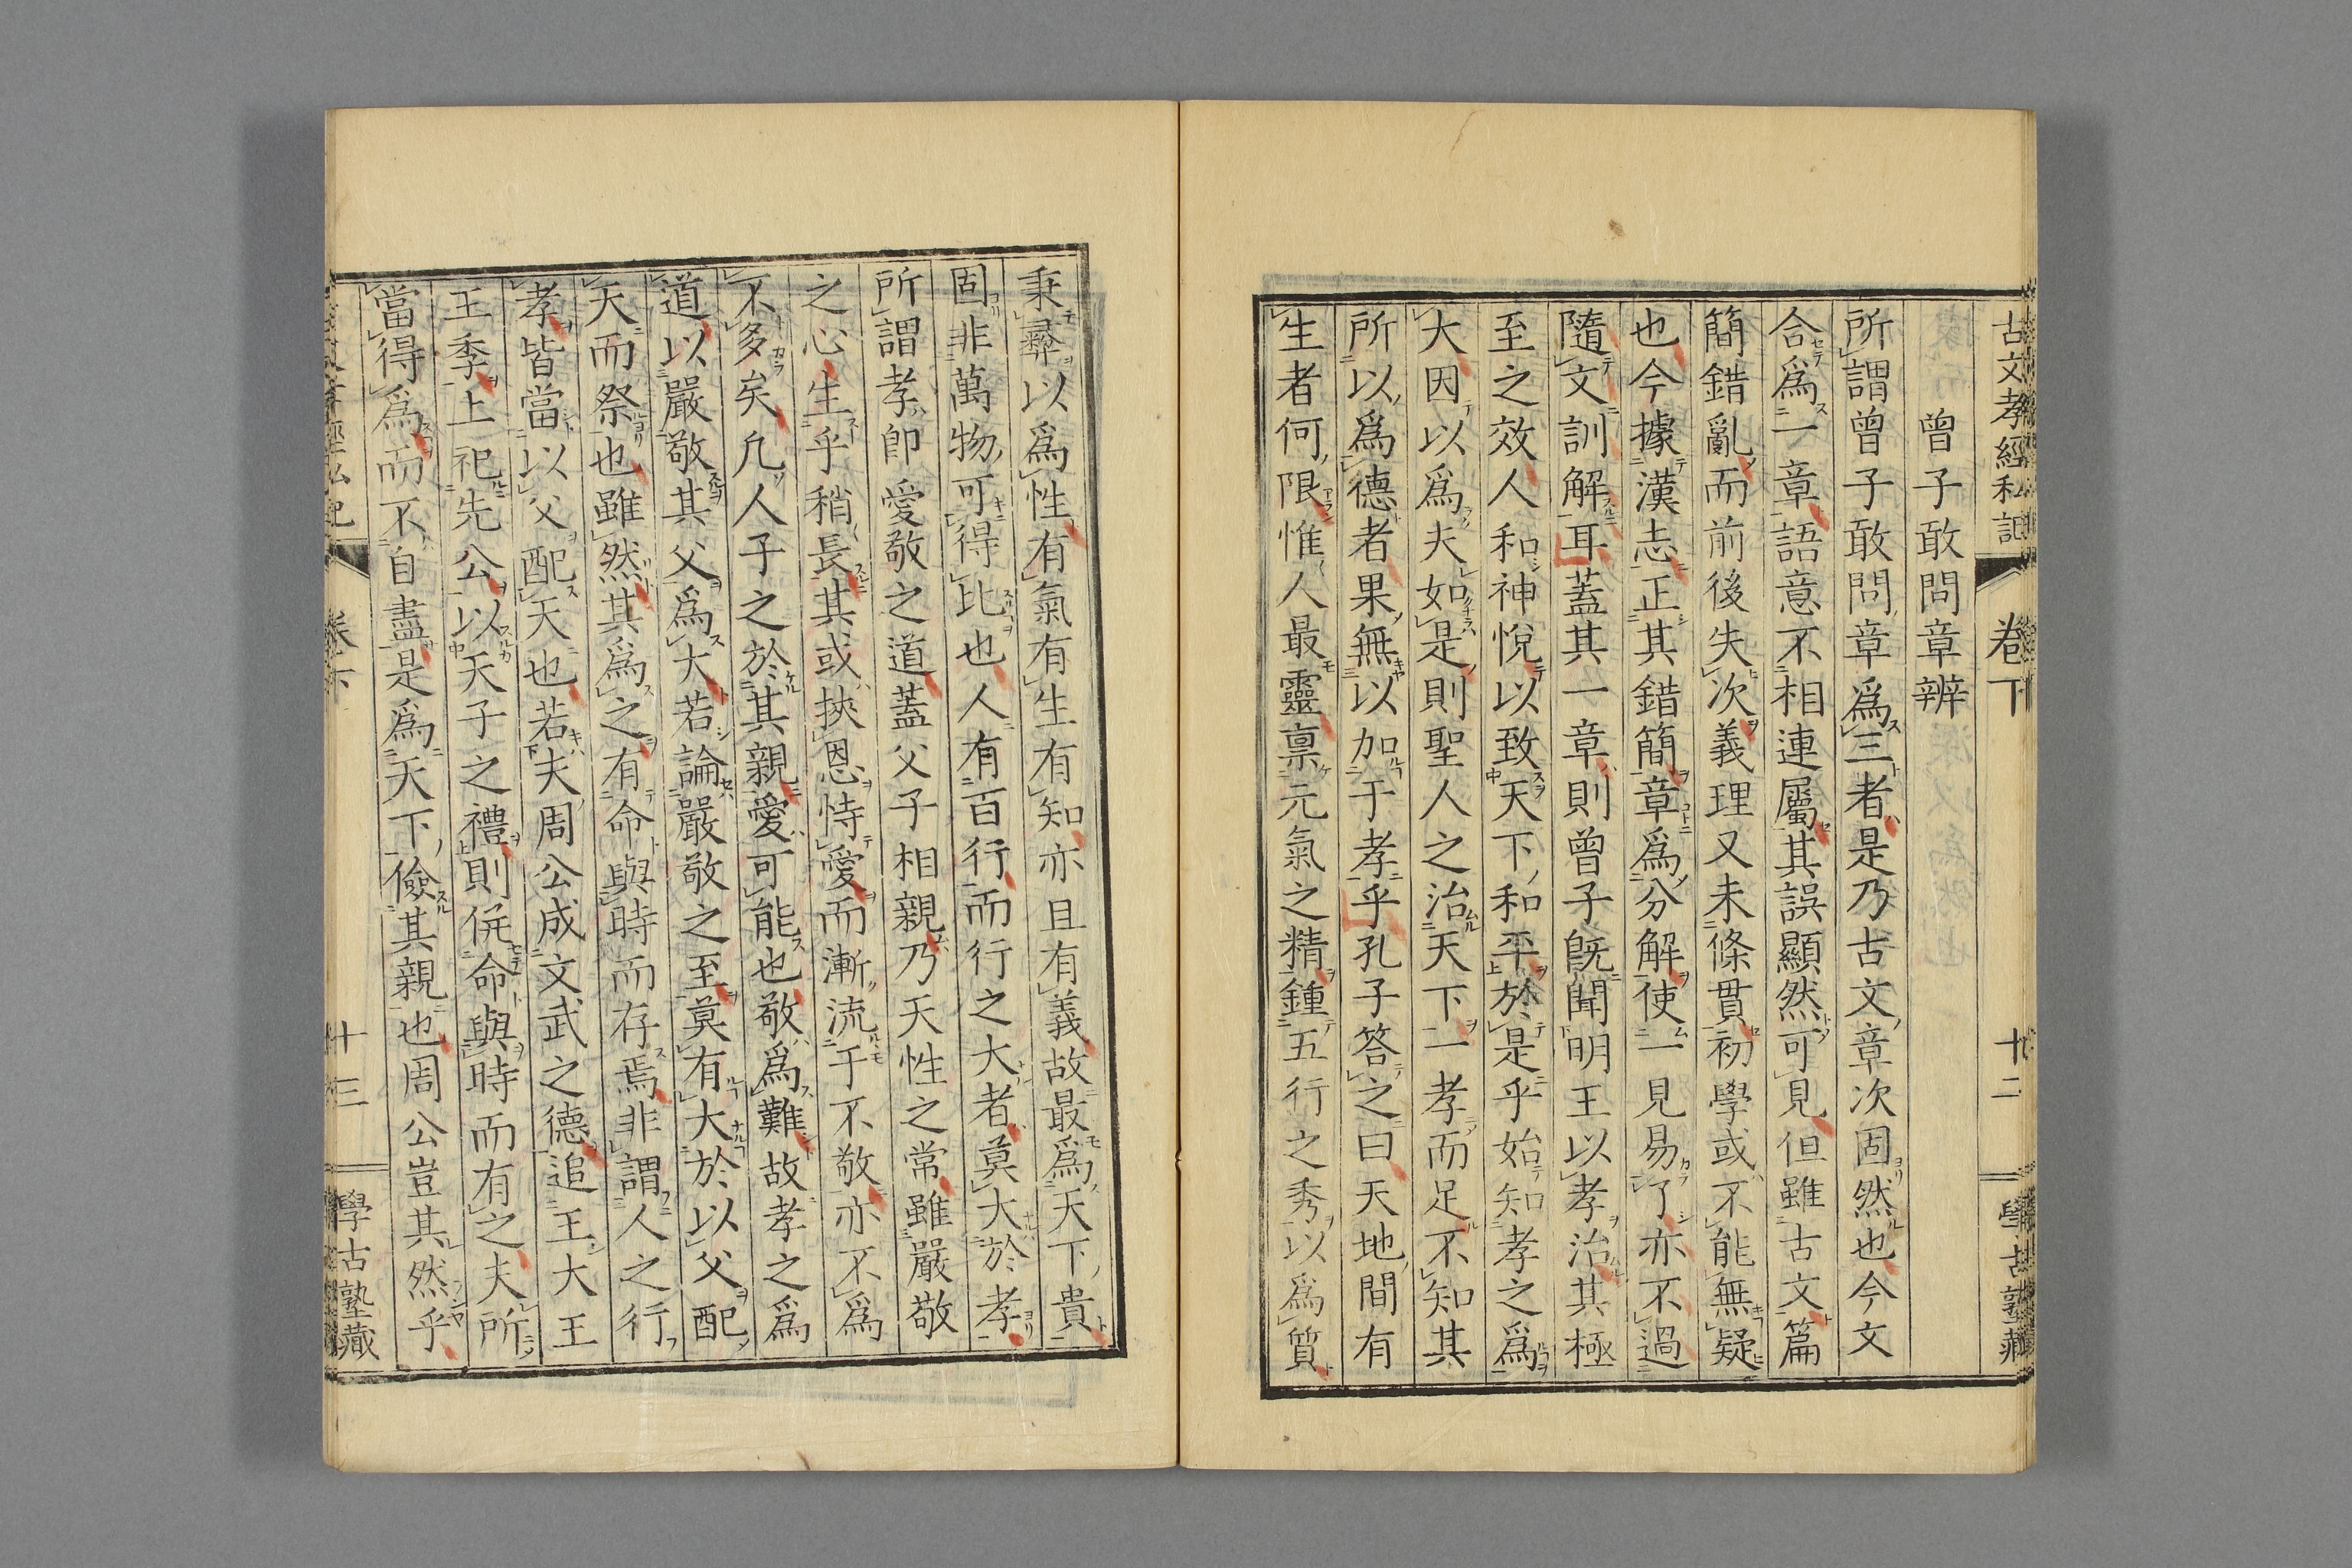 古文孝經私記 卷下 十二 學古塾藏
曾子敢問章辨
所謂曾子敢問章爲三者是乃古文章次固然也今文
合爲一章語意不相連屬其誤顯然可見但雖古文篇
簡錯亂而前後失次義理又未條貫初學或不能無疑
也今據漢志正其錯簡章爲分解使一見易了亦不過
隨文訓解耳蓋其一章則曾子既聞明王以孝治其極
至之效人和神悅以致天下和平於是乎始知孝之爲
大因以爲夫如是則聖人之治天下一孝而足不知其
所以爲德者果無以加于孝乎孔子答之曰天地間有
生者何限惟人最靈禀元氣之精鍾五行之秀以爲質
秉彝以爲性有氣有生有知亦且有義故最爲天下貴
固非萬物可得比也人有百行而行之大者莫大於孝
所謂孝卽愛敬之道蓋父子相親乃天性之常雖嚴敬
之心生乎稍長其或挾恩恃愛而漸流于不敬亦不爲
不多矣凡人子之於其親愛可能也敬爲難故孝之爲
道以嚴敬其父爲大若論嚴敬之至莫有大於以父配
天而祭也雖然其爲之有命與時而存焉非謂人之行
孝皆當以父配天也若夫周公成文武之德追王大王
王季上祀先公以天子之禮則俛命與時而有之夫所
當得爲而不自盡是爲天下儉其親也周公豈其然乎
卷下 十三 學古塾藏